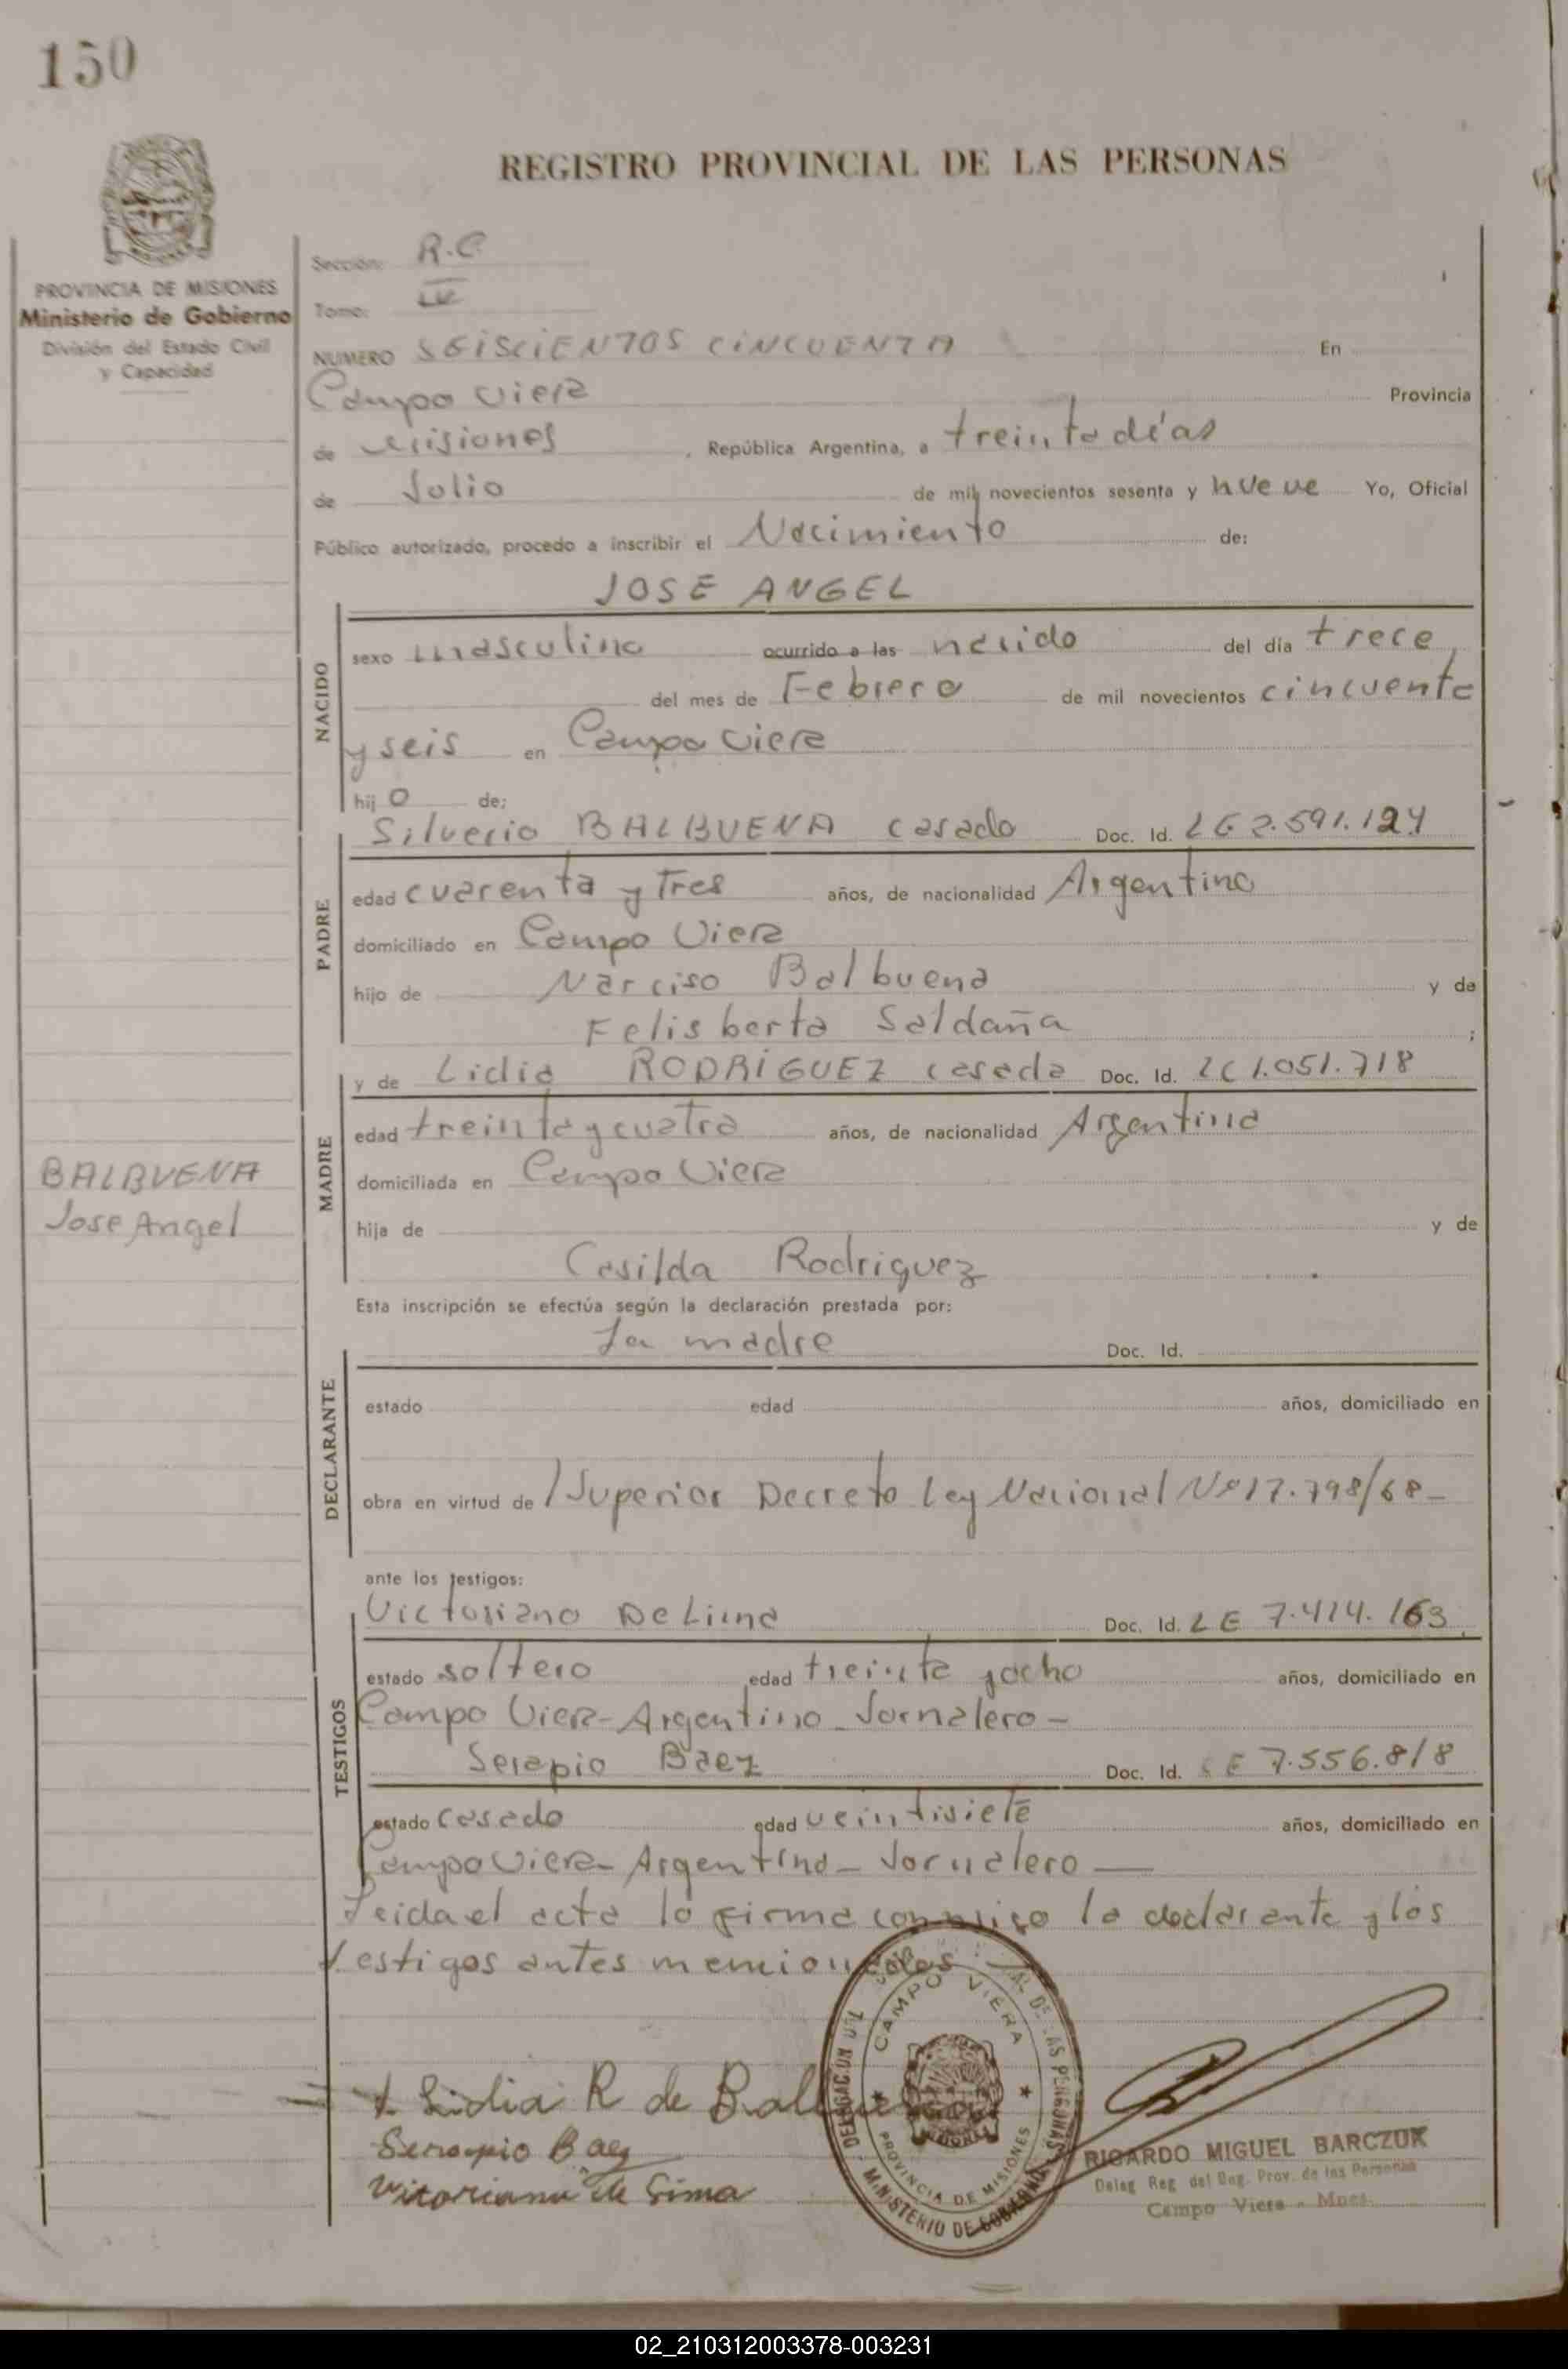 150
REGISTRO PROVINCIAL DE LAS PERSONAS
PROVINCIA DE MISIONES
Ministerio de Gobierno
División del Estado Civil
y Capacidad
Sección: R.C
Tomo:
NUMERO SEISCIENTOS CINCUENTA En
Campo Viera Provincia
de Misiones, República Argentina, a treinta días
de Julio de mil novecientos sesenta y nueve Yo, Oficial
Público autorizado, procedo a inscribir el Nacimiento de:
JOSE ANGEL
NACIDO
sexo masculino ocurrido a las nacido del día trece
del mes de Febrero de mil novecientos cincuenta
y seis en Campo Viera
hijo de:
PADRE
Silverio BALBUENA casado Doc. Id. LE 2.591.124
edad cuarenta y Tres años, de nacionalidad Argentino
domiciliado en Campo Viera
hijo de Narciso Balbuena y de
Felisberta Saldaña;
MADRE
y de Lidia RODRIGUEZ casada Doc. Id. LC 1.051.718
edad treinta y cuatro años, de nacionalidad Argentina
domiciliada en Campo Viera
BALBUENA
Jose Angel
hija de y de
Casilda Rodriguez
Esta inscripción se efectúa según la declaración prestada por:
DECLARANTE
La madre Doc. Id.
estado edad años, domiciliado en
obra en virtud de /Superior Decreto Ley Nacional Nº 17.798/68-
ante los testigos:
TESTIGOS
Victoriano De Lima Doc. Id. LE 7.414.163
estado soltero edad treinta y ocho años, domiciliado en
Campo Viera-Argentino-Jornalero-
Serapio Baez Doc. Id. LE 7.556.818
estado casado edad veintisiete años, domiciliado en
Campo Viera-Argentino-Jornalero-
Leida el acta la firma conmigo la declarante y los
testigos antes mencionados
Lidia R de Balbuena
Serapio Baez
Vitoriano de Lima
CAMPO VIERA
PROVINCIA DE MISIONES
MINISTERIO DE GOBIERNO
RICARDO MIGUEL BARCZUK
Deleg Reg del Reg. Prov. de las Personas
Campo Viera - Mnes.
02_210312003378-003231